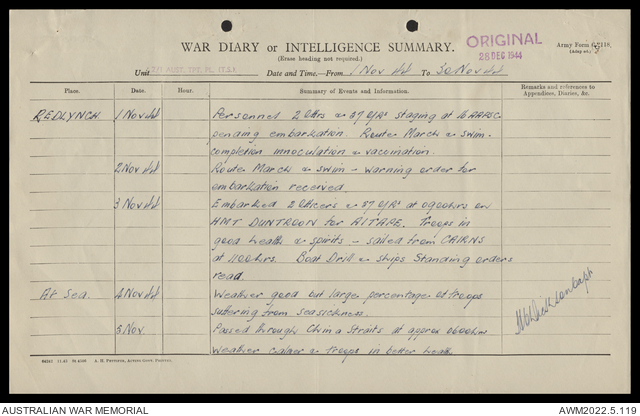 WAR DIARY or INTELLIGENCE SUMMARY.
(Erase heading not required.)
ORIGINAL
28 DEC 1944
Army Form
Unit AUST. TPT. PL.
Date and Time.—From 1 Nov 44 To 30 Nov 44
Place. Date. Hour. Summary of Events and Information. Remarks and references to Appendices, Diaries, &c.
REDLYNCH 1 Nov 44 Personnel 2 Offrs & 37 O/Rs staging at 16 AAPSC
pending embarkation. Route March & swim-
completion innoculation & vaccination.
2 Nov 44 Route March & swim - warning order for
embarkation received.
3 Nov 44 Embarked 2 Officers & 37 O/Rs at 0900hrs on
HMT DUNTROON for AITAPE. Troops in
good health & spirits - sailed from CAIRNS
at 1100hrs. Boat Drill & ships Standing orders
read.
At Sea. 4 Nov 44 Weather good but large percentage of troops
suffering from seasickness.
5 Nov. Passed through China Straits at approx 0600hrs
Weather calmer & Troops in better health
AUSTRALIAN WAR MEMORIAL
AWM2022.5.119